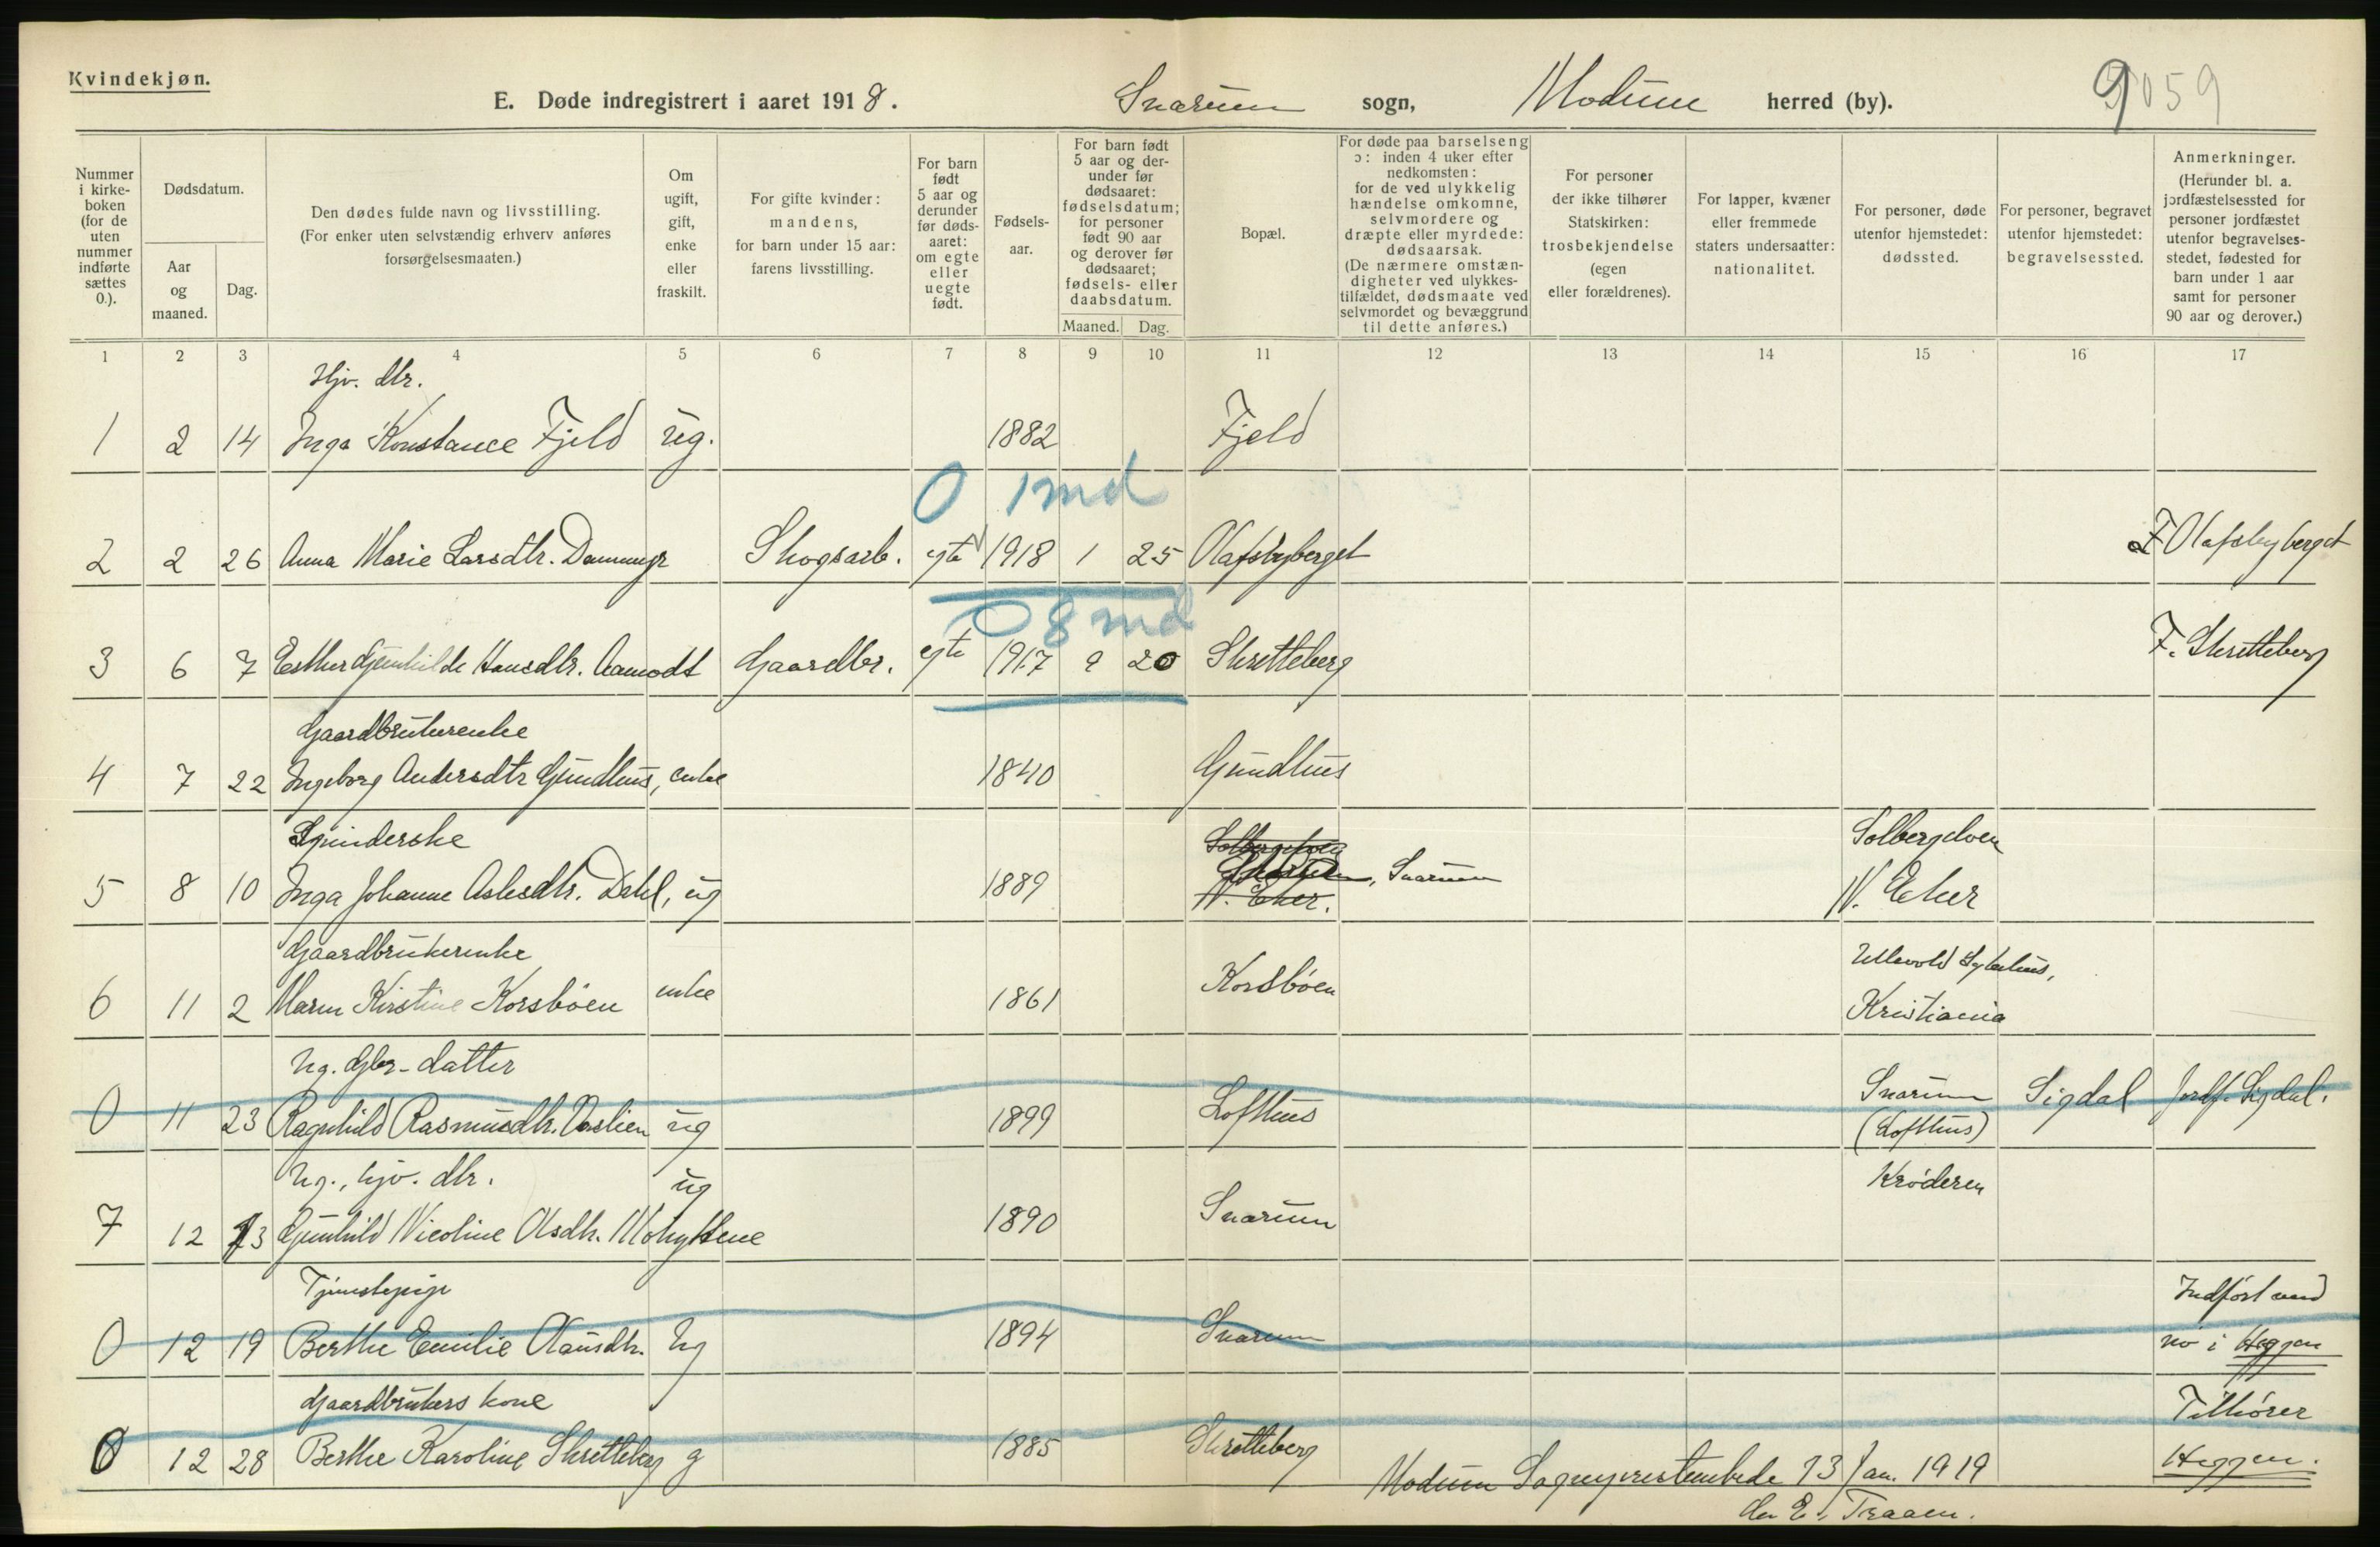 Kvindekjøn.
E. Døde indregistrert i aaret 1918. Snarum sogn, Modum herred (by). 9059
Nummer i kirke-boken (for de uten nummer indførte sættes 0.).
Dødsdatum.
Aar og maaned.
Dag.
Den dødes fulde navn og livsstilling. (For enker uten selvstændig erhverv anføres forsørgelsesmaaten.)
Om ugift, gift, enke eller fraskilt.
For gifte kvinder: mandens, for barn under 15 aar: farens livsstilling.
For barn født 5 aar og derunder før døds-aaret: om egte eller uegte født.
Fødsels-aar.
For barn født 5 aar og der-under før dødsaaret: fødselsdatum; for personer født 90 aar og derover før dødsaaret; fødsels- eller daabsdatum.
Maaned. Dag.
Bopæl.
For døde paa barselseng ɔ: inden 4 uker efter nedkomsten: for de ved ulykkelig hændelse omkomne, selvmordere og dræpte eller myrdede: dødsaarsak. (De nærmere omstæn-digheter ved ulykkes-tilfældet, dødsmaate ved selvmordet og bevæggrund til dette anføres.)
For personer der ikke tilhører Statskirken: trosbekjendelse (egen eller forældrenes).
For lapper, kvæner eller fremmede staters undersaatter: nationalitet.
For personer, døde utenfor hjemstedet: dødssted.
For personer, begravet utenfor hjemstedet: begravelsessted.
Anmerkninger. (Herunder bl. a. jordfæstelsessted for personer jordfæstet utenfor begravelses-stedet, fødested for barn under 1 aar samt for personer 90 aar og derover.)
1 2 3 4 5 6 7 8 9 10 11 12 13 14 15 16 17
Hjv. dtr.
1 2 14 Inga Konstance Fjeld ug. 1882 Fjeld
0 1 md
2 2 26 Anna Marie Larsdtr. Dammyr Skogsarb. egte 1918 1 25 Olafsbyberget F Olafsbyberget
0 8 md
3 6 7 Esther Gunhilde Hansdtr. Aamodt Gaardbr. egte 1917 9 20 Skretteberg F. Skretteberg
Gaardbrukerenke
4 7 22 Ingeborg Andersdtr Gundhus, enke 1840 Gundhus
Spinderske Solbergelven Solbergelven
5 8 10 Inga Johanne Aslesdtr. Dahl, ug 1889 , Snarum N. Eker. N. Eker
Gaardbrukerenke Ullevold Sykehus,
6 11 2 Maren Kirstine Korsbøen enke 1861 Korsbøen Kristiania
Ug. gbr-datter
0 11 23 Ragnhild Rasmusdtr. ug 1899 Lofthus Snarum (Lofthus) Sigdal Jordf. Sigdal.
Ug., hjv. dtr. ug Krøderen
7 12 13 Gunhild Nicoline Olsdtr. Mohyttene 1890 Snarum
Tjenstepige Indført med
0 12 19 Berthe Emilie Klausdtr. Ug 1894 Snarum no i Heggen
Gaardbrukers kone Tilhører
0 12 28 Berthe Karoline Skretteberg g 1885 Skretteberg Heggen.
Modum Sogneprestembede 13 Jan. 1919
Chr E. Traaen.